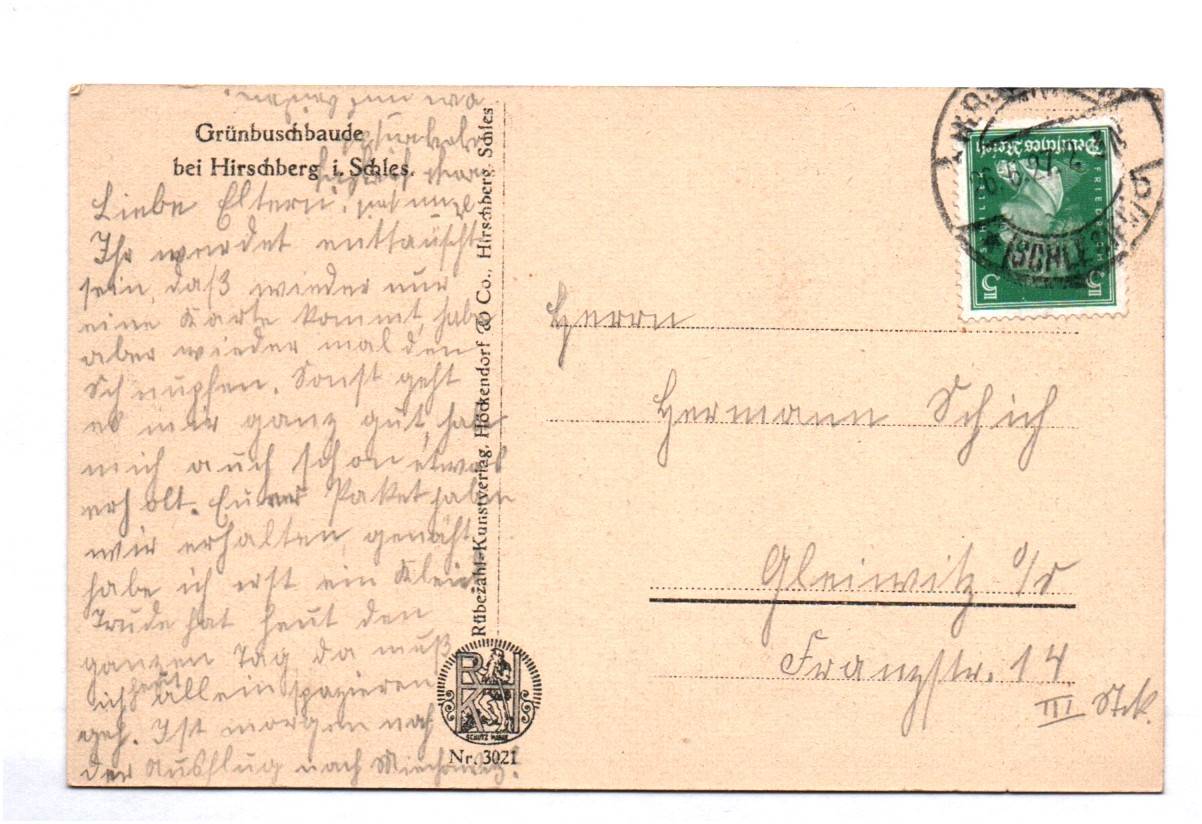 Grünbuschbaude
bei Hirschberg i. Schles.
Liebe Eltern!
Ihr werdet enttäuscht
sein, daß wieder nur
eine Karte kommt, habe
aber wieder mal den
Schnupfen. Sonst geht
es mir ganz gut, habe
mich auch schon etwas
erholt. Euer Paket haben
wir erhalten, genäht
habe ich erst ein Kleid
Trude hat heut den
ganzen Tag, da muß
ich heut allein spazieren
geh. Ist morgen noch
der Ausflug nach
Rübezahl-Kunstverlag, Höckendorf & Co., Hirschberg Schles
RKH
SCHUTZ MARKE
Nr. 3021
Deutsches Reich
FRIEDRICH
SCHILLER
5 5
(SCHLESIEN)
b
Herrn
Hermann Schich
Gleiwitz o/s
Franzstr. 14
III Stck.